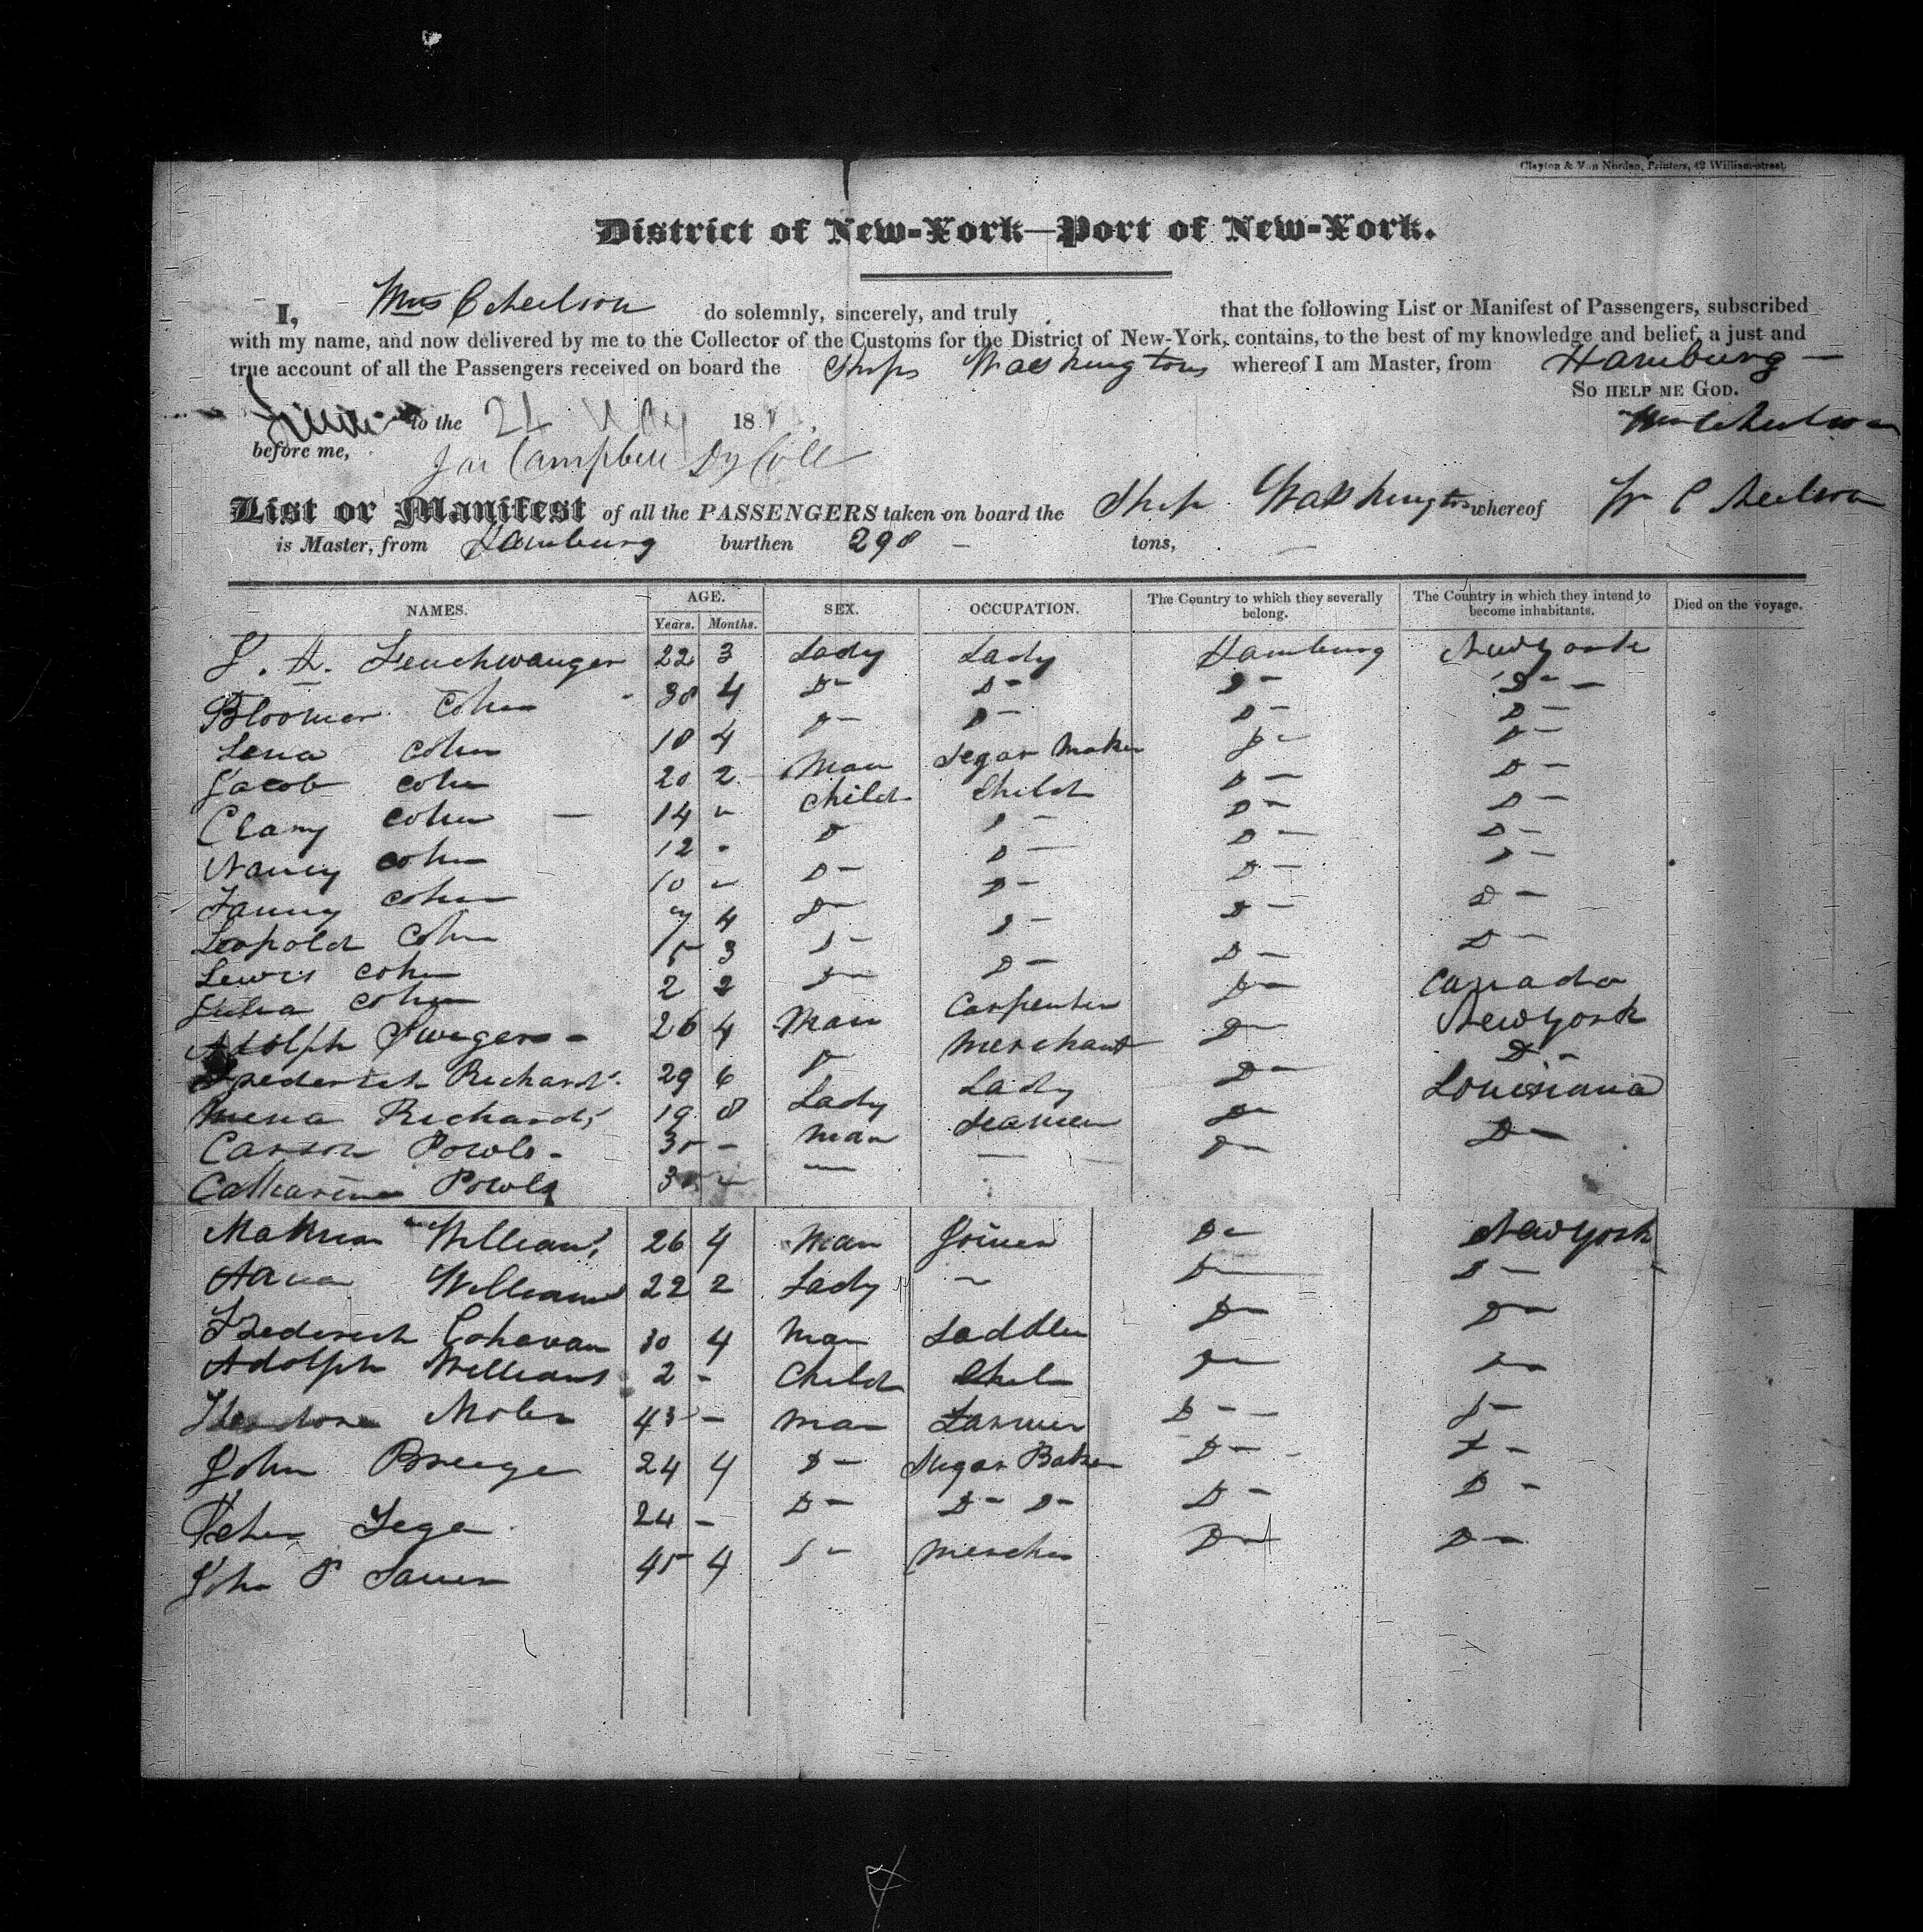 Clayton & Van Norden, Printers, 42 William-street.
District of New-York—Port of New-York.
I, do solemnly, sincerely, and truly that the following List or Manifest of Passengers, subscribed
with my name, and now delivered by me to the Collector of the Customs for the District of New-York, contains, to the best of my knowledge and belief, a just and
true account of all the Passengers received on board the Ship Washington whereof I am Master, from Hamburg —
So help me God.
to the 24 18
before me, Jas Campbell Dy Coll
List or Manifest of all the PASSENGERS taken on board the Ship Washington whereof
is Master, from Hamburg burthen 298 — tons,
NAMES. AGE. SEX. OCCUPATION. The Country to which they severally belong. The Country in which they intend to become inhabitants. Died on the voyage.
Years. Months.
22 3 Lady Lady Hamburg New york
Cohn 38 4 D— D— D— D—
Lena Cohn 18 4 D— D— D— D—
Jacob Cohn 20 2 Man Segar Maker D— D—
Clary Cohn — 14 " Child Child D— D—
Nancy Cohn 12 " D D— D— D—
Fanny Cohn 10 " D— D— D— D—
Leopold Cohn 7 4 D— D— D— D—
Lewis Cohn 3 D— D— D— D—
Julia Cohn 2 2 D— D— D— D—
Adolph 26 4 Man Carpenter D— Canada
Frederich Richards 29 6 D Merchant D— New york
Mena Richards 19 8 Lady Lady D— D—
Carson Powls — Man Seamen D— Louisiana
Catharine Powls — — D— D—
Williams 26 4 Man Joiner D— New york
Williams 22 2 Lady — D— D—
Frederich 30 4 Man Saddler D— D—
Adolph Williams 2 — Child Child D— D—
43 — Man Farmer D— D—
John 24 4 D— Sugar Baker D— D—
Peter 24 — D— D— D— D— D—
John 45 4 D— D— D—